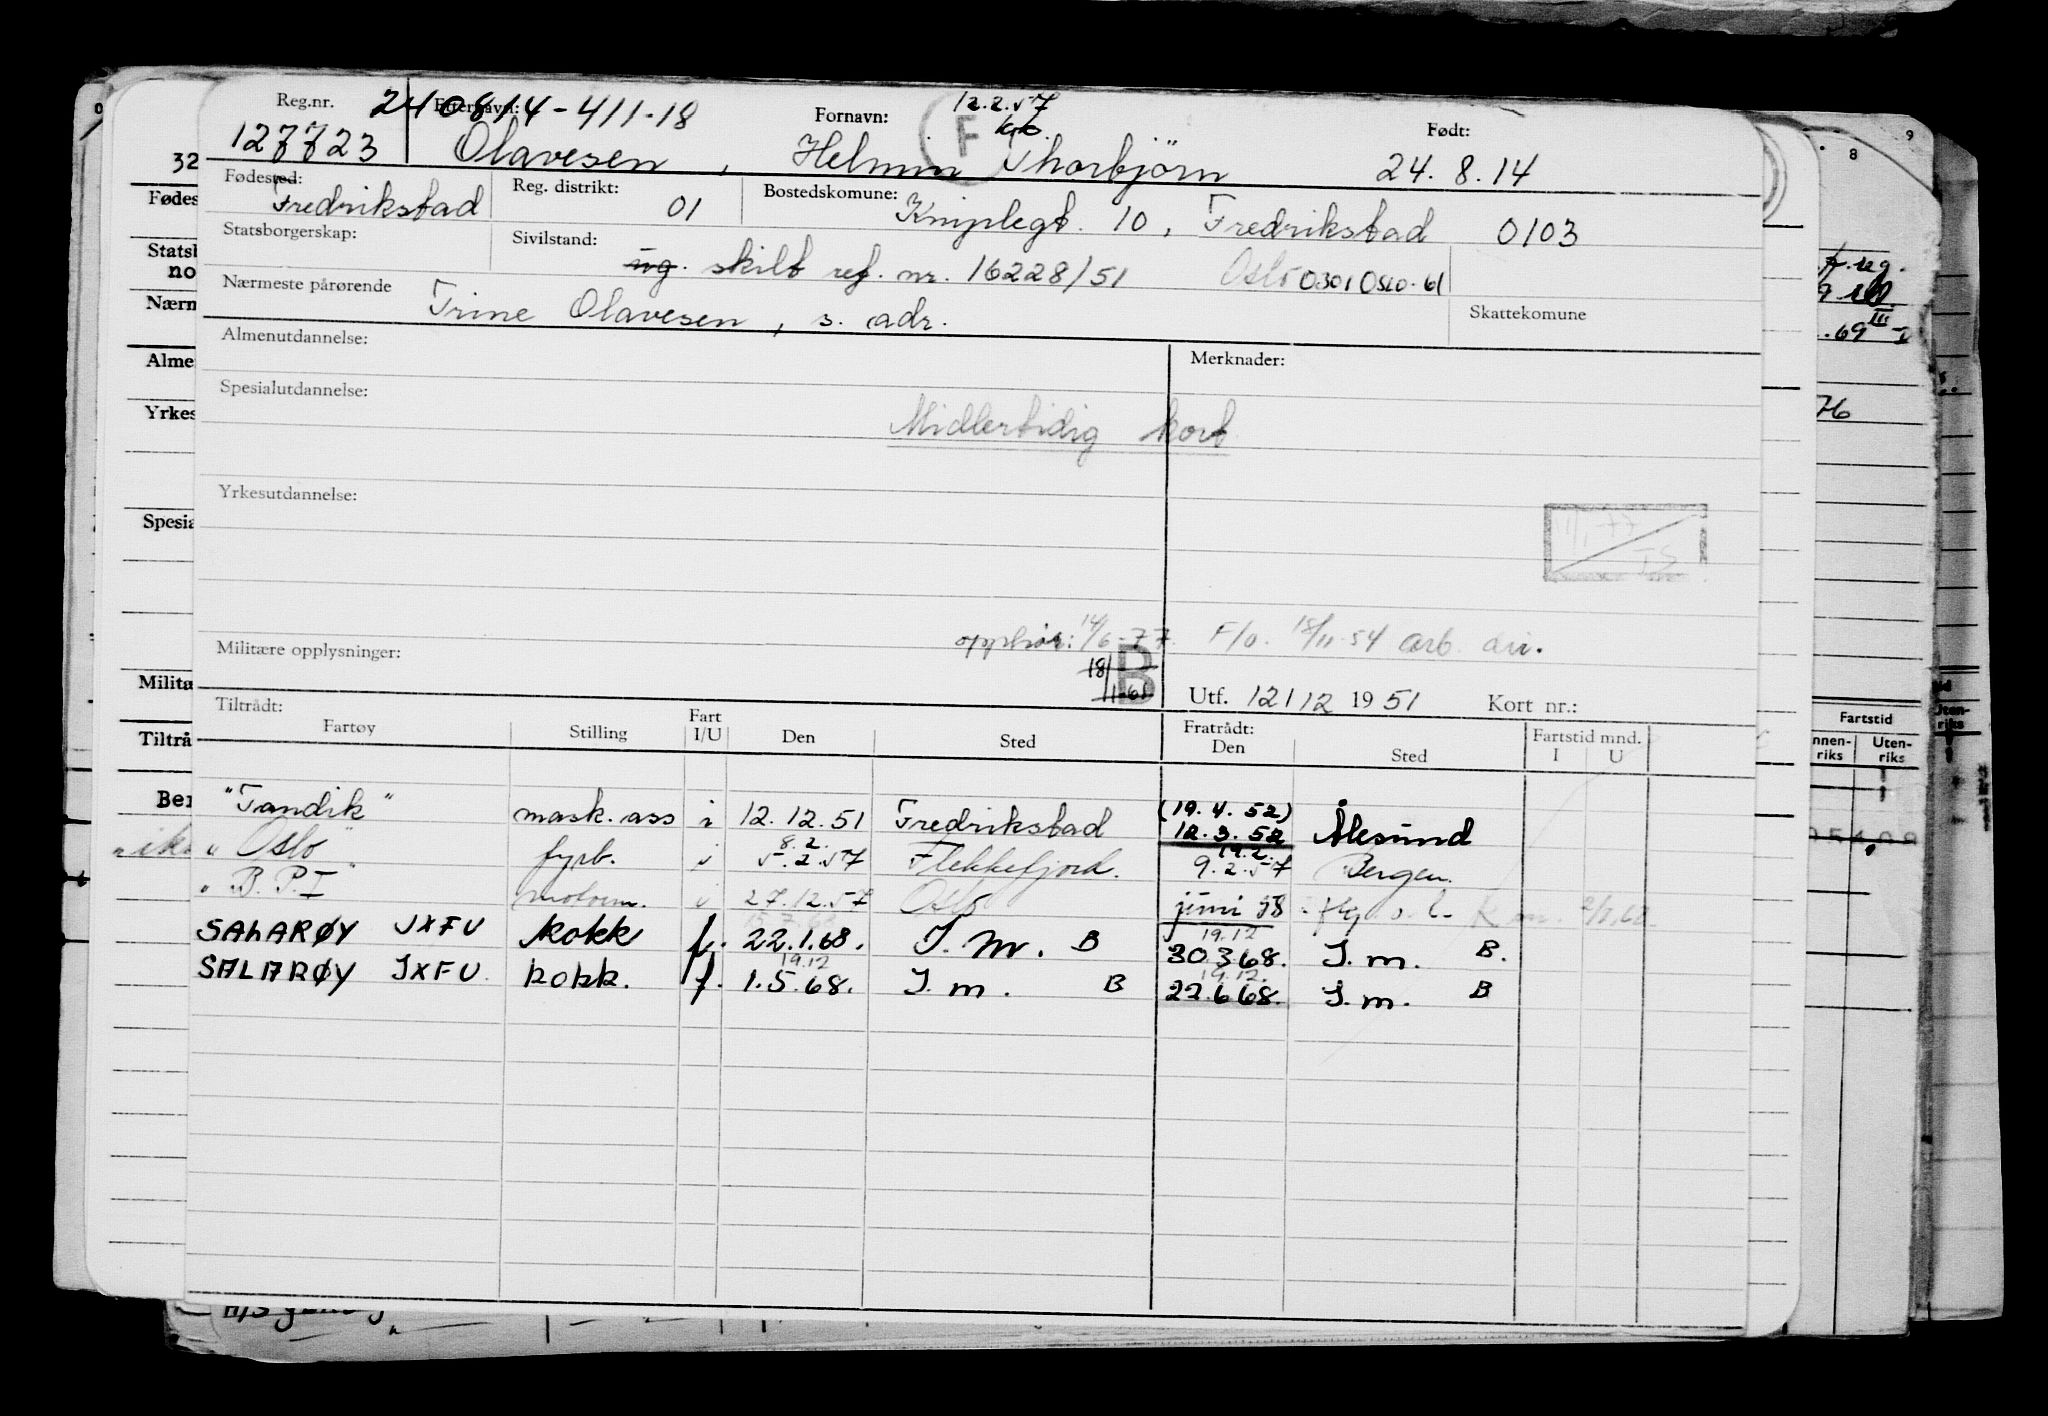 Reg.nr. 240814-411-18 Etternavn: Fornavn: 12.2.57 Født:
127723 Olavesen, Helmin Thorbjörn F 24.8.14
Fødested: Reg. distrikt: Bostedskomune:
Fredrikstad 01 Kniplegt. 10, Fredrikstad 0103
Statsborgerskap: Sivilstand:
ug. skilt ref. nr. 16228/51 Oslo 0301 OSLO-61
Nærmeste pårørende Trine Olavesen, s. adr. Skattekomune
Almenutdannelse: Merknader:
Spesialutdannelse:
Midlertidig kort
Yrkesutdannelse:
opphør: 14/6-77 F/o. 18/11-54 arb. div.
Militære opplysninger: B
18/1-61 Utf. 12/12 1951 Kort nr.:
Tiltrådt: Fratrådt: Fartstid mnd.
Fartøy Stilling Fart I/U Den Sted Den Sted I U
"Tandik" mask.ass i 12.12.51 Fredrikstad (19.4.52) 12.3.52 Ålesund
8.2. 19.2.
"Oslo" fyrb. i 5.2.57 Flekkefjord. 9.2.57 Bergen.
"B.P.I" motorm. i 27.12.57 Oslo juni 58
19.12
SALARØY JXFU kokk f. 22.1.68. I.m. B 30.3.68. I.m. B.
19.12 19.12.
SALARØY JXFU. kokk. f. 1.5.68. I.m. B 22.6.68. I.m. B
32
Fødes
Stats
no
Nærn
Alme
Yrkes
Spesia
Milita
Tiltrå
Ber
8
9
76
Fartstid
Uten-
riks